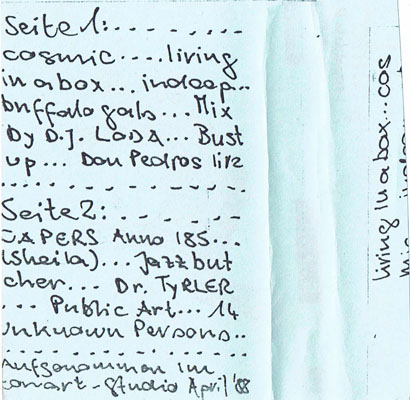 Seite 1: - - - - - - -
cosmic....living
in a box... indeep..
buffalo gals... Mix
By D.J. LODA... Bust
up... Don Pedros live
..... - . - - - - - .
Seite 2: - - - - - -
CAPERS Anno 185...
(Sheila)... Jazz but
cher... Dr. TyRLER
... Public Art... 14
Unknown Persons..
...................
Aufgenommen im
conart-Studio April '88
living in a box...cos